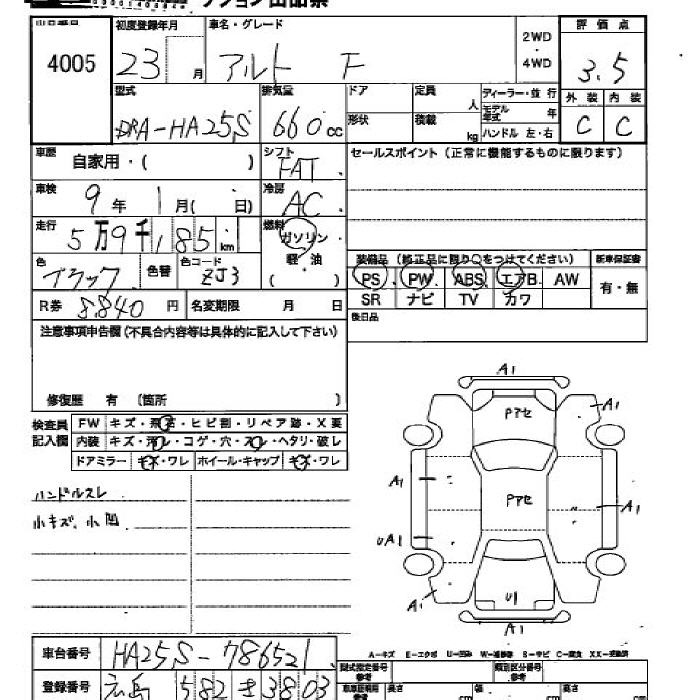 出品番号 初度登録年月 車名・グレード 2WD・4WD 評価点
4005 23 月 アルト F 3.5
型式 排気量 ドア 定員 人 ディーラー・並行 外装 内装
DBA-HA25S 660cc 形状 積載 kg モデル年式 年 ハンドル 左・右 C C
車歴 自家用・( ) シフト FAT セールスポイント(正常に機能するものに限ります)
車検 9年 1月( 日) 冷房 AC
走行 5万9千185km 燃料 ガソリン・軽・油 ( )
色 ブラック 色替 色コード ZJ3 装備品(純正品に限り○をつけてください) 新車保証書
PS PW ABS エアB AW 有・無
SR ナビ TV カワ
R券 8,840円 名変期限 月 日 後日品
注意事項申告欄(不具合内容等は具体的に記入して下さい)
修復歴 有 (箇所 )
検査員記入欄 FW キズ・飛石・ヒビ割・リペア跡・X要
内装 キズ・汚レ・コゲ・穴・スレ・ヘタリ・破レ
ドアミラー キズ・ワレ ホイール・キャップ キズ・ワレ
ハンドルスレ
小キズ、小凹
A1
Pアセ A1
A1 Pアセ A1
UA1
A1 U1
A1
A-キズ E-エクボ U-凹み W-補修跡 S-サビ C-腐食 XX-交換済
車台番号 HA25S-786521
型式指定番号 類別区分番号
登録番号 広島 582 き 3803
長さ cm 幅 cm 高さ cm